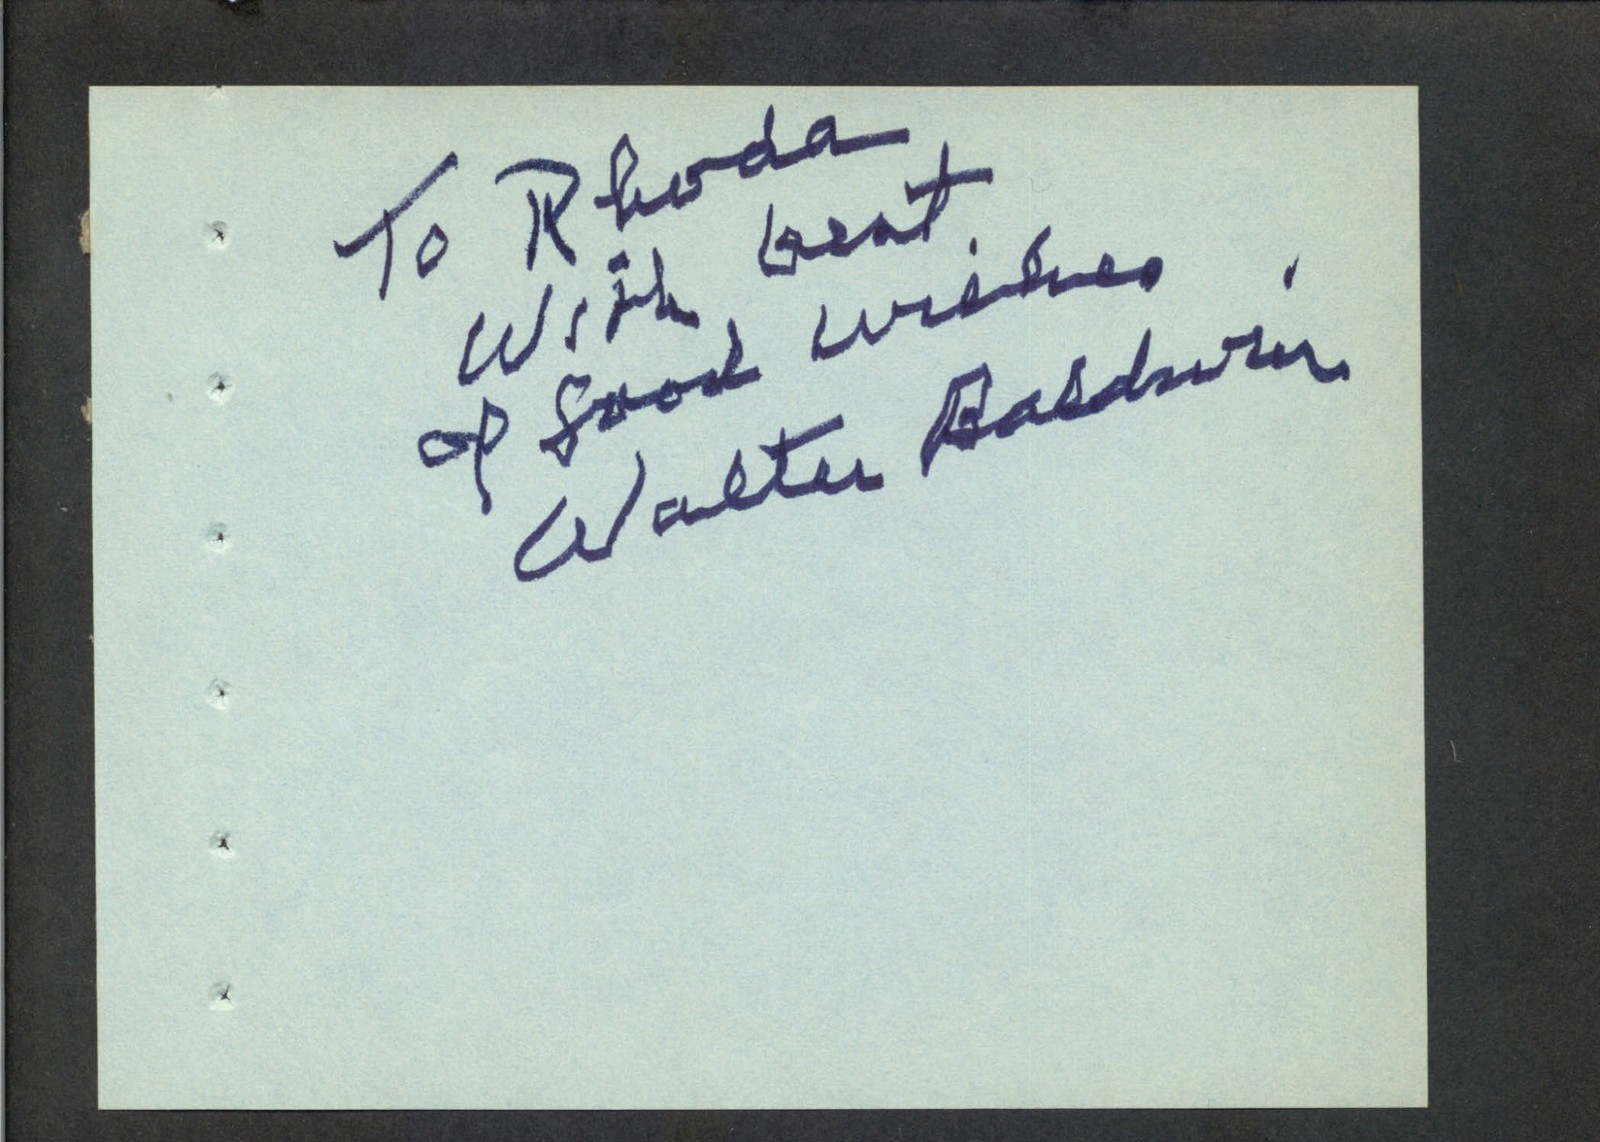 To Rhoda
With best
of good wishes
Walter Baldwin